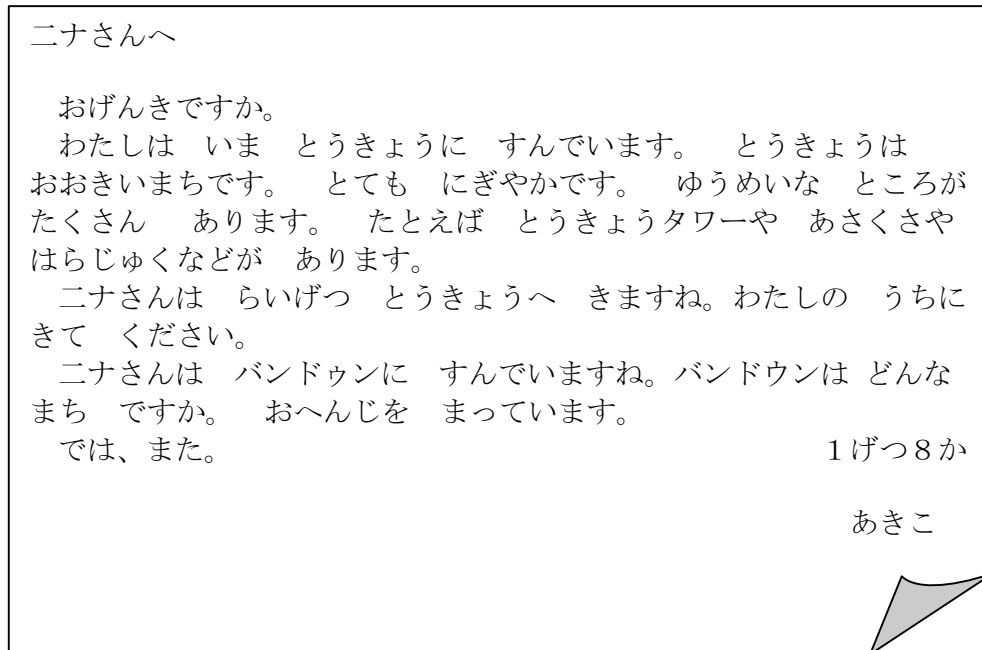 二ナさんへ
おげんきですか。
わたしは　いま　とうきょうに　すんでいます。　とうきょうは
おおきいまちです。　とても　にぎやかです。　ゆうめいな　ところが
たくさん　あります。　たとえば　とうきょうタワーや　あさくさや
はらじゅくなどが　あります。
二ナさんは　らいげつ　とうきょうへ　きますね。わたしの　うちに
きて　ください。
二ナさんは　バンドゥンに　すんでいますね。バンドウンは どんな
まち　ですか。　おへんじを　まっています。
では、また。　１げつ８か
あきこ